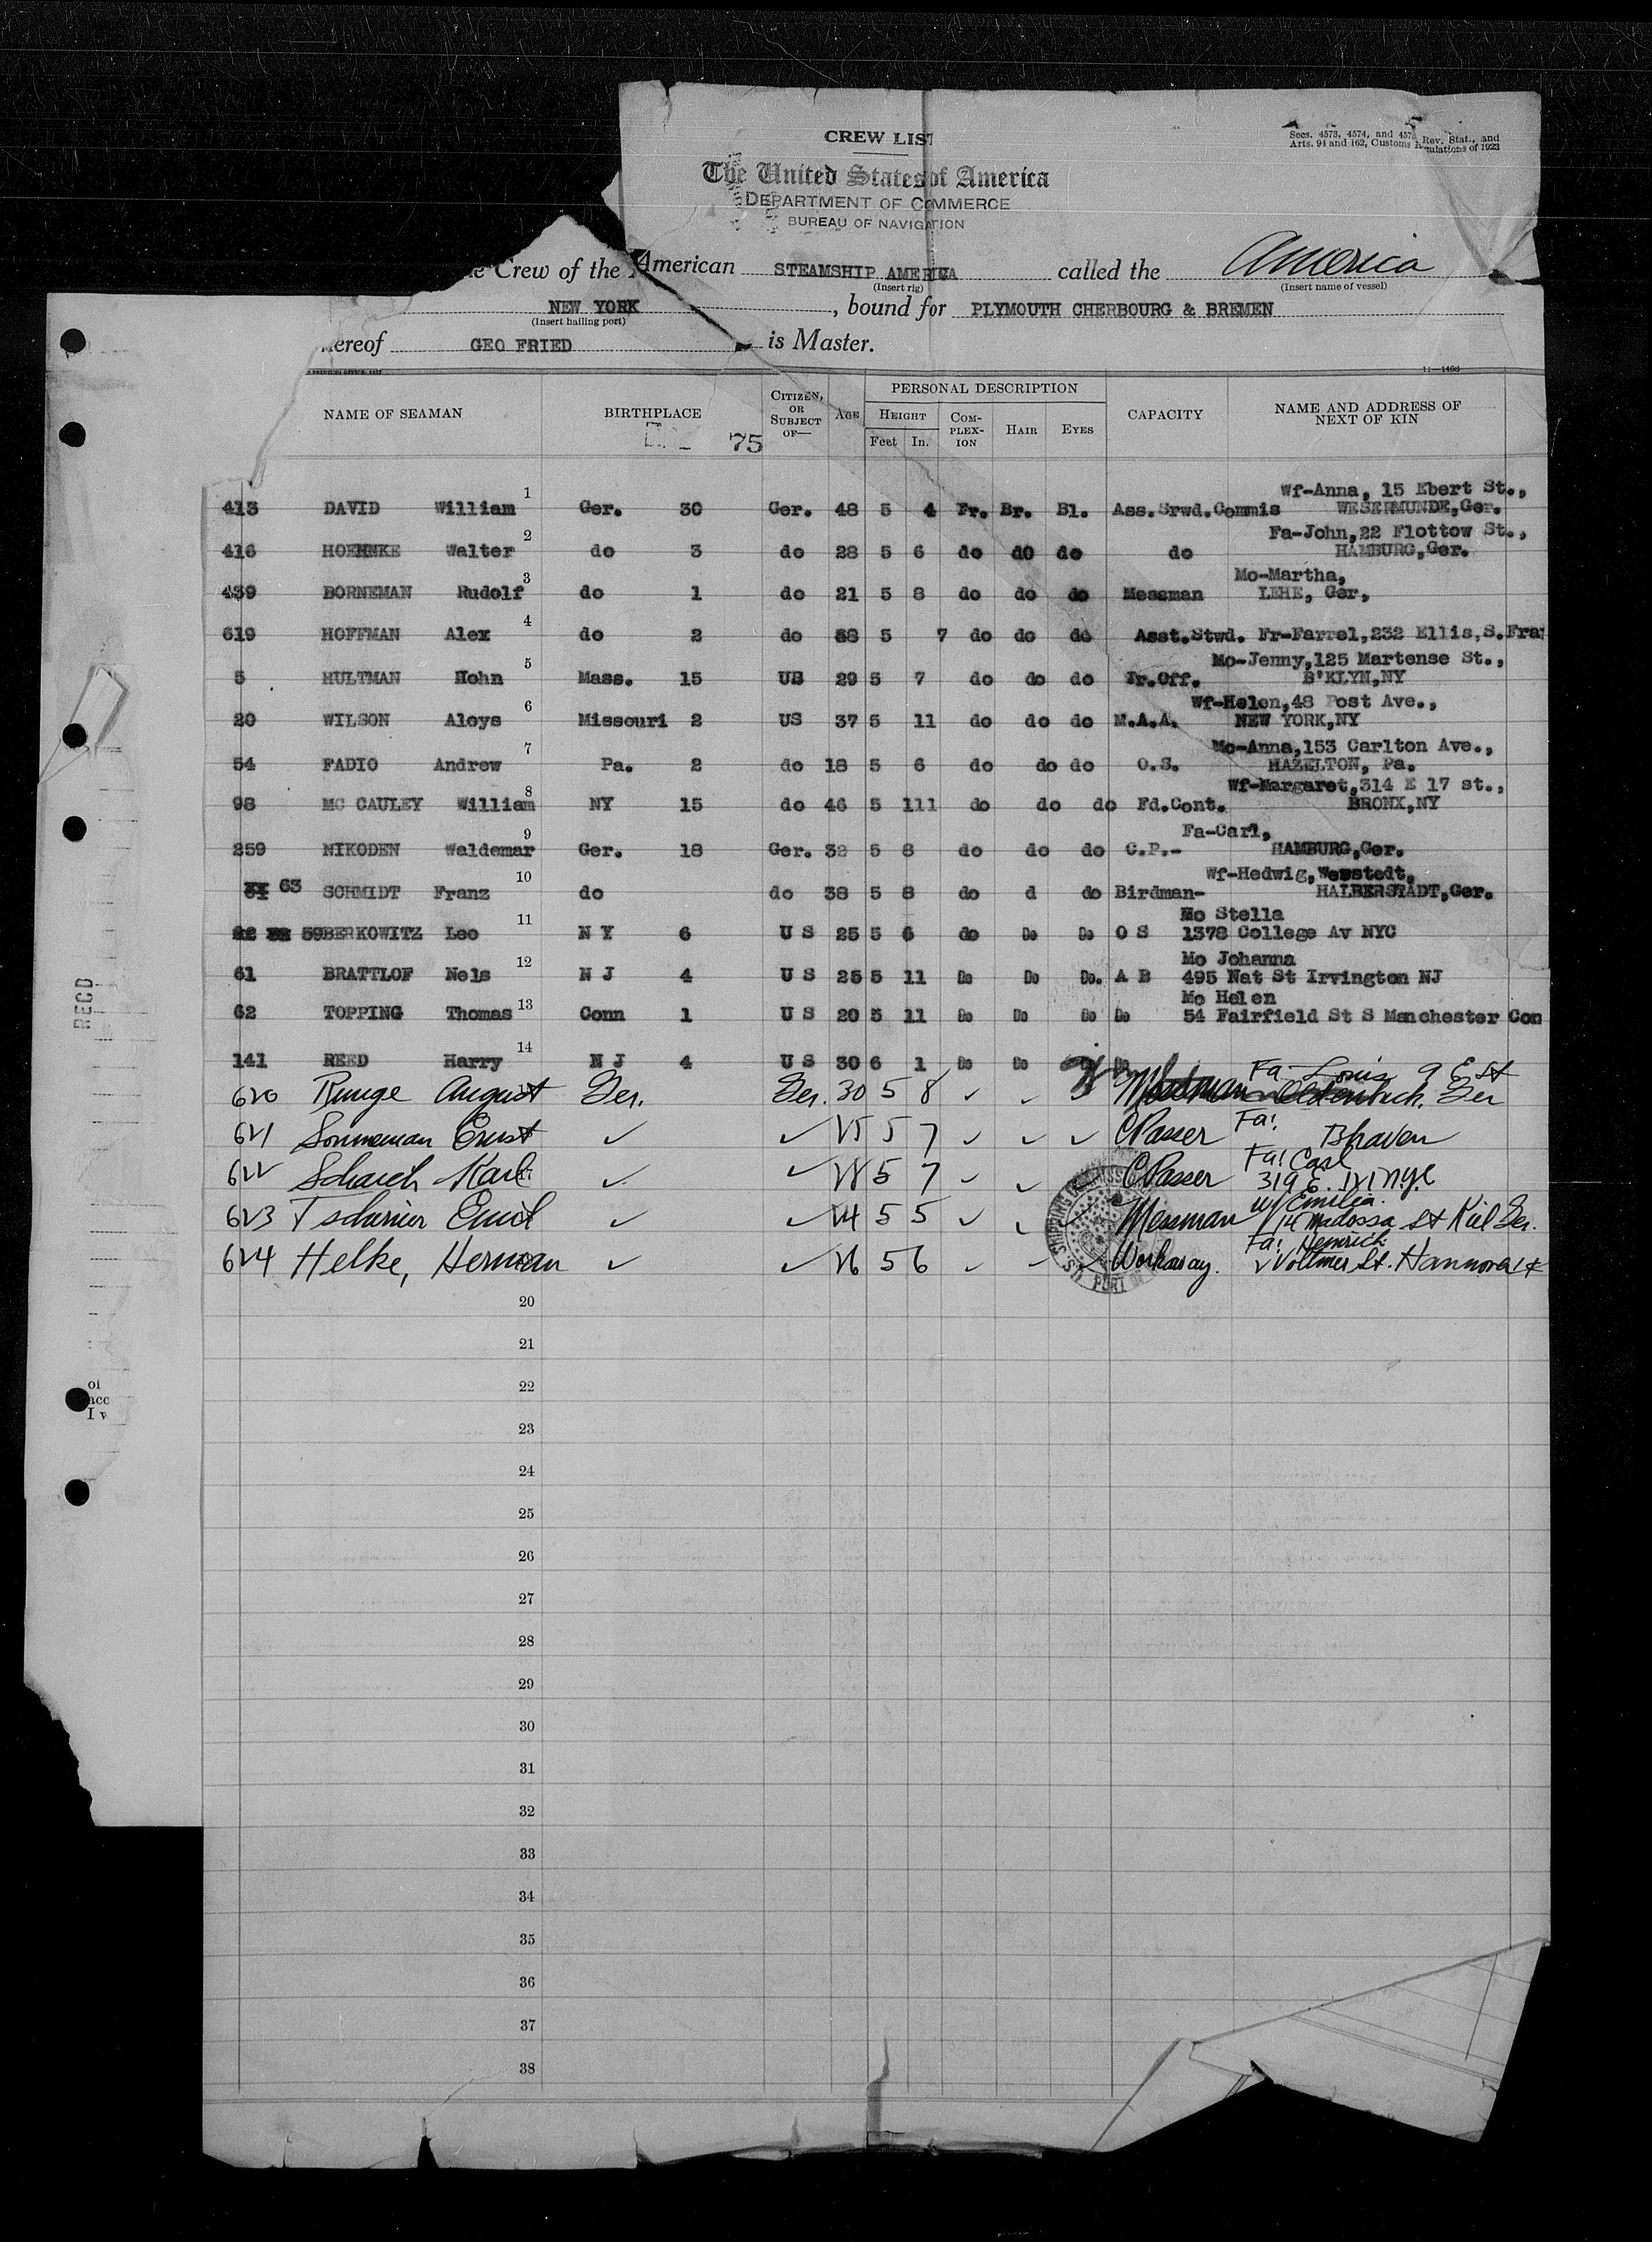 CREW LIST
Secs. 4573, 4574, and 457 Rev. Stat., and
Arts. 94 and 162, Customs Regulations of 1923
The United States of America
DEPARTMENT OF COMMERCE
BUREAU OF NAVIGATION
e Crew of the American STEAMSHIP AMERICA called the America
(Insert rig) (Insert name of vessel)
NEW YORK, bound for PLYMOUTH CHERBOURG & BREMEN
(Insert hailing port)
hereof GEO FRIED is Master.
11—1408
NAME OF SEAMAN BIRTHPLACE CITIZEN, OR SUBJECT OF— AGE PERSONAL DESCRIPTION CAPACITY NAME AND ADDRESS OF NEXT OF KIN
HEIGHT COMPLEXION HAIR EYES
Feet In.
75
Wf-Anna, 15 Ebert St.,
413 DAVID William 1 Ger. 30 Ger. 48 5 4 Fr. Br. Bl. Ass.Srwd.Commis WESERMUNDE,Ger.
Fa-John,22 Flottow St.,
416 HOEHNKE Walter 2 do 3 do 28 5 6 do do do do HAMBURG,Ger.
Mo-Martha,
439 BORNEMAN Rudolf 3 do 1 do 21 5 8 do do do Messman LEHE, Ger,
619 HOFFMAN Alex 4 do 2 do 38 5 7 do do do Asst.Stwd. Fr-Farrel,232 Ellis,S.Fra
Mo-Jenny,125 Martense St.,
5 HULTMAN Hohn 5 Mass. 15 US 29 5 7 do do do Jr.Off. B'KLYN,NY
Wf-Helen,48 Post Ave.,
20 WILSON Aloys 6 Missouri 2 US 37 5 11 do do do M.A.A. NEW YORK,NY
Mo-Anna,153 Carlton Ave.,
54 FADIO Andrew 7 Pa. 2 do 18 5 6 do do do O.S. HAZELTON, Pa.
Wf-Margaret,314 E 17 st.,
98 MC CAULEY William 8 NY 15 do 46 5 111 do do do Fd.Cont. BRONX,NY
Fa-Carl,
259 NIKODEN Waldemar 9 Ger. 18 Ger. 32 5 8 do do do C.P.- HAMBURG,Ger.
Wf-Hedwig,
63 SCHMIDT Franz 10 do do 38 5 8 do d do Birdman- HALBERSTADT,Ger.
Mo Stella
59 BERKOWITZ Leo 11 N Y 6 U S 25 5 6 do Do Do O S 1378 College Av NYC
Mo Johanna
61 BRATTLOF Nels 12 N J 4 U S 25 5 11 Do Do Do. A B 495 Nat St Irvington NJ
Mo Helen
62 TOPPING Thomas 13 Conn 1 U S 20 5 11 Do Do Do Do 54 Fairfield St S Manchester Con
141 REED Harry 14 N J 4 U S 30 6 1 Do Do Do
Fa- Louis 9 E St
620 Runge August Ger. Ger. 30 5 8 ✓ ✓ Ger
621 Sonneman Ernst ✓ ✓ 25 5 7 ✓ ✓ ✓ C Passer Fa! Bhaven
Fa! Carl
622 Schaich Karl ✓ ✓ 28 5 7 ✓ ✓ C Passer 319 E. 121 nyc
W/ Emilia.
623 Emil ✓ ✓ 24 5 5 ✓ ✓ ✓ Messman St Kiel Ger.
Fa! Heinrich
624 Helke, Herman ✓ ✓ 26 5 6 ✓ ✓ ✓ Workaway. Vollmer St. Hannover
20
21
22
23
24
25
26
27
28
29
30
31
32
33
34
35
36
37
38
RECD
of
acc
I v